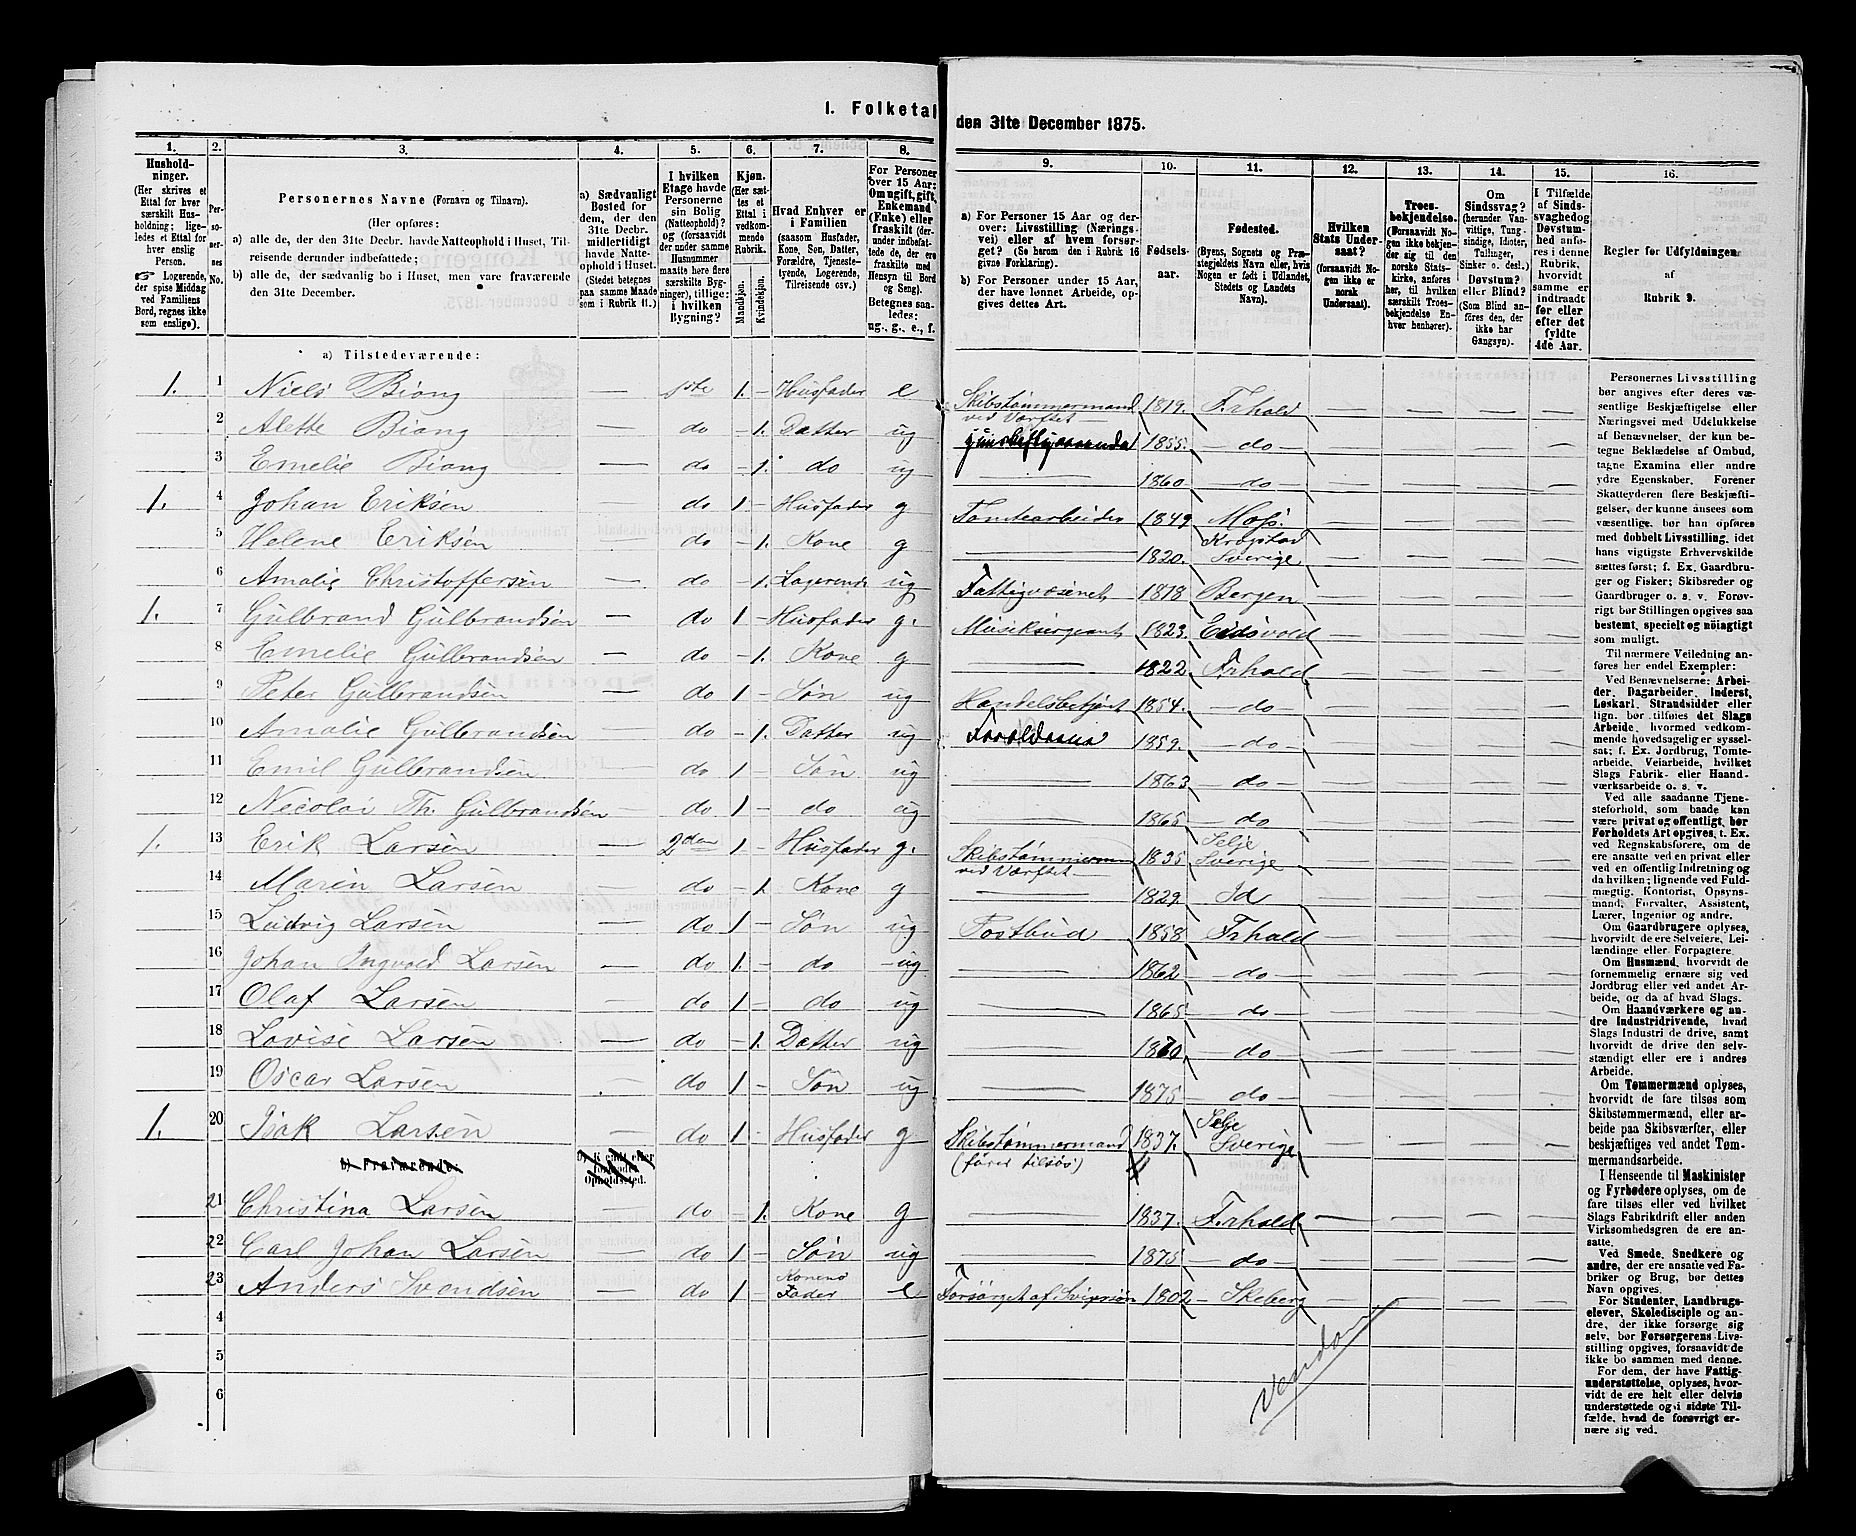 I. Folketal
den 31te December 1875.
1. 2. 3. 4. 5. 6. 7. 8. 9. 10. 11. 12. 13. 14. 15. 16.
Hushold-
ninger.
(Her skrives et
Ettal for hver
særskilt Hus-
holdning; lige-
ledes et Ettal for
hver enslig
Person.
☞ Logerende,
der spise Middag
ved Familiens
Bord, regnes ikke
som enslige).
Per-
so-
ner-
nes
No.
Personernes Navne (Fornavn og Tilnavn).
(Her opføres:
a) alle de, der den 31te Decbr. havde Natteophold i Huset, Til-
reisende derunder indbefattede;
b) alle de, der sædvanlig bo i Huset, men vare fraværende
den 31te December.
a) Sædvanligt
Bosted for
dem, der den
31te Decbr.
midlertidigt
havde Natte-
ophold i Huset.
(Stedet betegnes
paa samme Maade
som i Rubrik 11.)
I hvilken
Etage havde
Personerne
sin Bolig
(Natteophold)?
og (forsaavidt
der under samme
Husnummer
maatte høre flere
særskilte Byg-
ninger), tillige:
i hvilken
Bygning?
Kjøn.
(Her sæt-
tes et
Ettal i
vedkom-
mende
Rubrik.
Mandkjøn.
Kvindekjøn.
Hvad Enhver er
i Familien
(saasom Husfader,
Kone, Søn, Datter,
Forældre, Tjeneste-
tyende, Logerende,
Tilreisende osv.).
For Personer
over 15 Aar:
Om ugift, gift,
Enkemand
(Enke) eller
fraskilt (der-
under indbefat-
tede de, der ere
fraskilte med
Hensyn til Bord
og Seng).
Betegnes saa-
ledes:
ug., g., e., f.
a) For Personer 15 Aar og der-
over: Livsstilling (Nærings-
vei) eller af hvem forsør-
get? (Se herom den i Rubrik 16
givne Forklaring).
b) For Personer under 15 Aar,
der have lønnet Arbeide, op-
gives dettes Art.
Fødsels-
aar.
Fødested.
(Byens, Sognets og Præ-
stegjeldets Navn eller, hvis
Nogen er født i Udlandet,
Stedets og Landets
Navn).
Hvilken
Stats Under-
saat?
(forsaavidt No-
gen ikke er
norsk
Undersaat).
Troes-
bekjendelse.
(Forsaavidt No-
gen ikke bekjen-
der sig til den
norske Stats-
kirke, anføres
her, til hvilken
særskilt Troes-
bekjendelse En-
hver henhører).
Om
Sindssvag?
(herunder Van-
vittige, Tung-
sindige, Idioter,
Tullinger,
Sinker o. desl.)
Døvstum?
eller Blind?
(Som Blind an-
føres den, der
ikke har
Gangsyn).
I Tilfælde
af Sinds-
svaghed og
Døvstum-
hed anfø-
res i denne
Rubrik,
hvorvidt
samme er
indtraadt
før eller
efter det
fyldte
4de Aar.
Regler før Udfyldningen
af
Rubrik 9.
a) Tilstedeværende:
1. 1 Niels Biong — 1ste 1. – Husfader e Skibstømmermand ved Værftet 1819. Frhald
2 Alette Biong do – 1. Datter ug 1855. do
3 Emelie Biong — do – 1. do ug — 1860. do
1. 4 Johan Eriksen do 1 – Husfader g Tomtearbeider 1849 Moss.
5 Helene Eriksen do – 1. Kone g — 1820. Krogstad Sverige
6 Amalie Christoffersen — do – 1. Logerende ug Fattigvæsenet 1818 Bergen
1. 7 Gulbrand Gulbrandsen do 1 – Husfader g. Musiksergeant 1823. Eidsvold
8 Emelie Gulbrandsen — do – 1. Kone g — 1822 Frhald
9 Peter Gulbrandsen — do 1 – Søn ug Handelsbetjent 1854. do
10 Amalie Gulbrandsen do – 1. Datter ug 1859. do
11 Emil Gulbrandsen do 1 – Søn ug — 1863 do
12 Nicolai Th. Gulbrandsen do 1 – do ug — 1865 do
1. 13 Erik Larsen — 2den 1 – Husfader g. Skibstømmerman ved Værftet 1835 Selje Sverige
14 Maren Larsen — do – 1. Kone g — 1829 Id
15 Ludvig Larsen do 1 – Søn ug Postbud 1858 Frhald
16 Johan Ingvald Larsen — do 1. – do ug — 1862 do
17 Olaf Larsen — do 1 – do ug — 1865 do
18 Lovise Larsen — do – 1. Datter ug — 1870 do
19 Oscar Larsen — do 1 – Søn ug — 1875 do
1. 20 Isak Larsen — do 1 – Husfader g Skibstømmermand (farer tilsøs) 1837. Selje Sverige
b) Fraværende:
b) Kjendt eller
formodet
Opholdssted.
21 Christina Larsen — do – 1. Kone g — 1837. Frhald
22 Carl Johan Larsen — do 1 – Søn ug — 1875 do
23 Anders Svendsen — do 1 – Konens Fader e Forsørget af Svigersøn 1802 Skeberg
4
5
6
Personernes Livsstilling
bør angives efter deres væ-
sentlige Beskjæftigelse eller
Næringsvei med Udelukkelse
af Benævnelser, der kun be-
tegne Beklædelse af Ombud,
tagne Examina eller andre
ydre Egenskaber. Forener
Skatteyderen flere Beskjæfti-
gelser, der kunne ansees som
væsentlige, bør han opføres
med dobbelt Livsstilling, idet
hans vigtigste Erhvervskilde
sættes først; f. Ex. Gaardbru-
ger og Fisker; Skibsreder og
Gaardbruger o. s. v. Forøv-
rigt bør Stillingen opgives saa
bestemt, specielt og nøiagtigt
som muligt.
Til nærmere Veiledning an-
føres her endel Exempler:
Ved Benævnelserne: Arbei-
der, Dagarbeider, Inderst,
Løskarl, Strandsidder eller
lign. bør tilføies det Slags
Arbeide, hvormed vedkom-
mende hovedsagelig er syssel-
sat; f. Ex. Jordbrug, Tomte-
arbeide, Veiarbeide, hvilket
Slags Fabrik- eller Haand-
værksarbeide o. s. v.
Ved alle saadanne Tjene-
steforhold, som baade kan
være privat og offentligt, bør
Forholdets Art opgives, t. Ex.
ved Regnskabsførere, om de
ere ansatte ved en privat eller
en offentlig Indretning og
da hvilken; lignende ved Fuld-
mægtig, Kontorist, Opsyns-
mand, Forvalter, Assistent,
Lærer, Ingeniør og andre.
Om Gaardbrugere oplyses,
hvorvidt de ere Selveiere, Lei-
lændinge eller Forpagtere.
Om Husmænd, hvorvidt de
fornemmelig ernære sig ved
Jordbrug eller ved andet Ar-
beide, og da af hvad Slags.
Om Haandværkere og an-
dre Industridrivende, hvad
Slags Industri de drive, samt
hvorvidt de drive den selv-
stændigt eller ere i andres
Arbeide.
Om Tømmermænd oplyses,
hvorvidt de fare tilsøs som
Skibstømmermænd, eller ar-
beide paa Skibsværfter, eller
beskjæftiges ved andet Tøm-
mermandsarbeide.
I Henseende til Maskinister
og Fyrbødere oplyses, om de
fare tilsøs eller ved hvilket
Slags Fabrikdrift eller anden
Virksomhedsgren de ere an-
satte.
Ved Smede, Snedkere og
andre, der ere ansatte ved Fa-
briker og Brug, bør dettes
Navn opgives.
For Studenter, Landbrugs-
elever, Skoledisciple og an-
dre, der ikke forsørge sig
selv, bør Forsørgerens Livs-
stilling opgives, forsaavidt de
ikke bo sammen med denne.
For dem, der have Fattig-
understøttelse, oplyses, hvor-
vidt de ere helt eller delvis
understøttede og i sidste Til-
fælde, hvad de forøvrigt er-
nære sig ved.